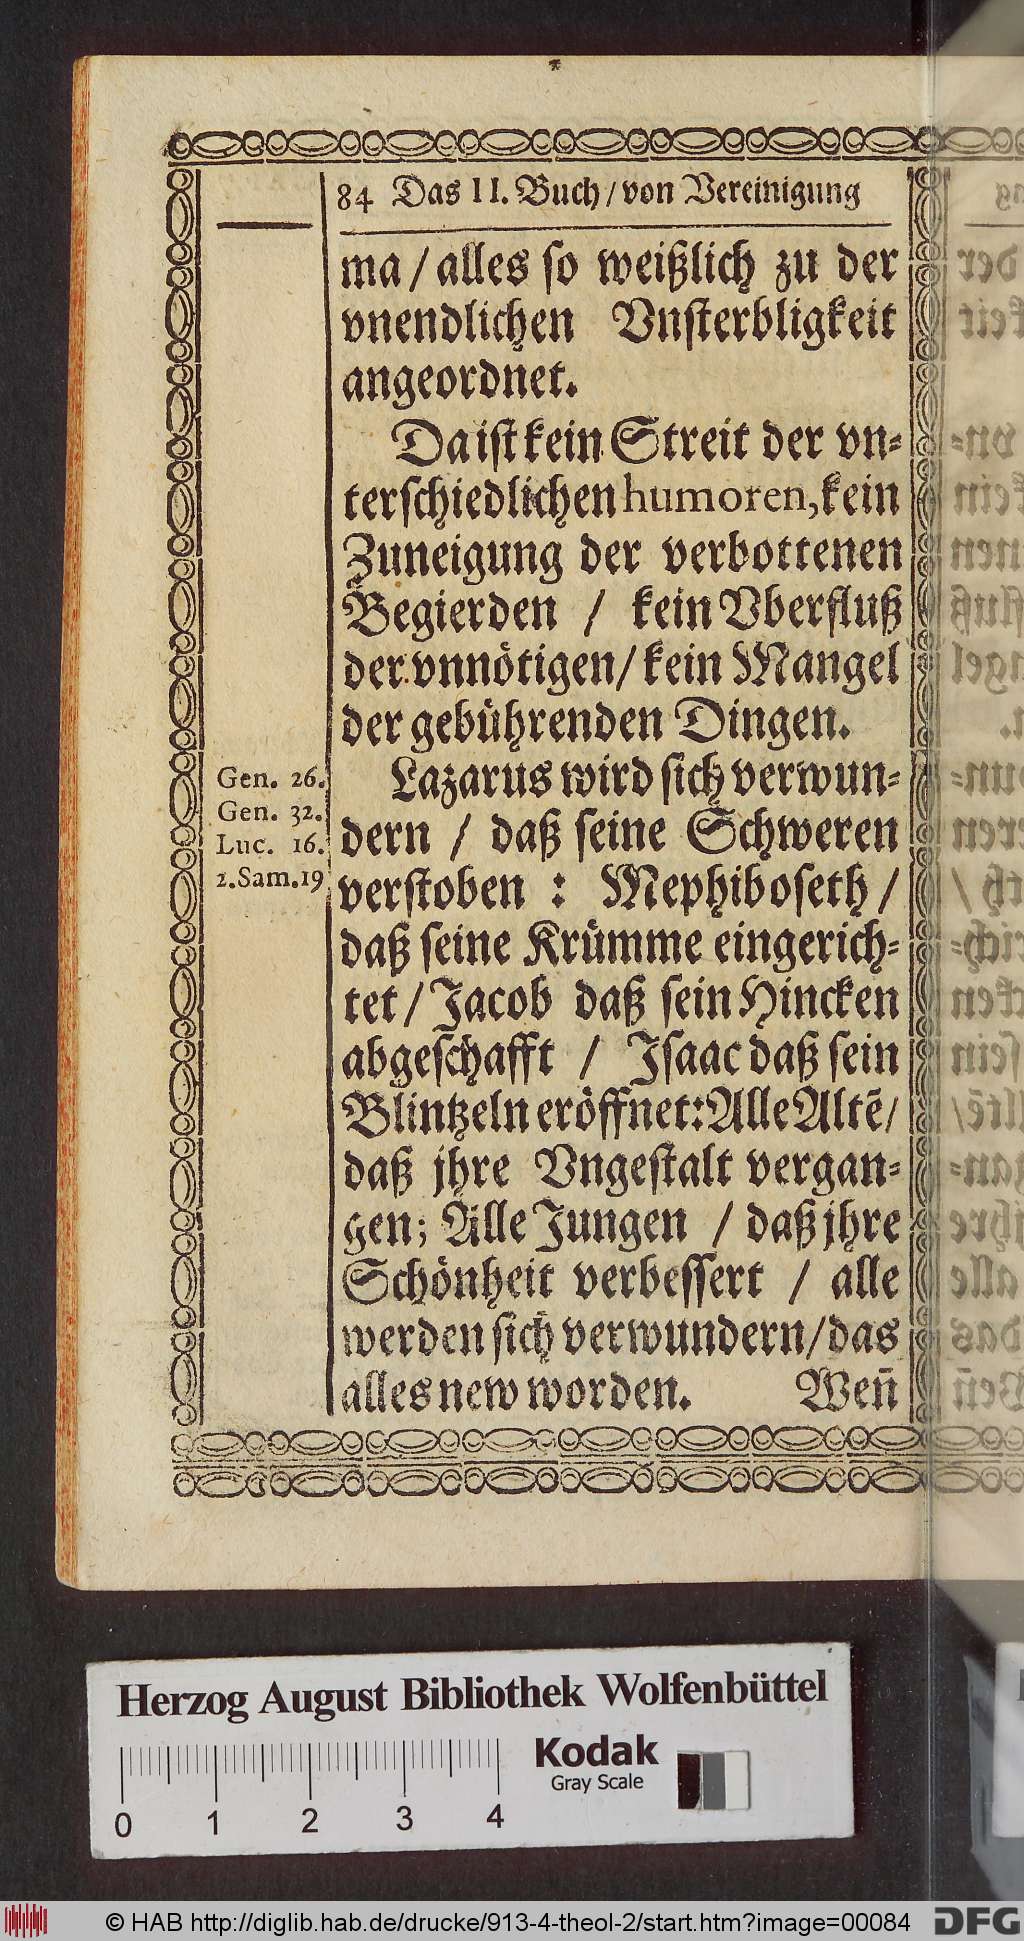 84 Das II. Buch / von Vereinigung
ma / alles so weißlich zu der
vnendlichen Vnsterbligkeit
angeordnet.
Da ist kein Streit der vn-
terschiedlichen humoren, kein
Zuneigung der verbottenen
Begierden / kein Vberfluß
der vnnötigen / kein Mangel
der gebührenden Dingen.
Lazarus wird sich verwun-
dern / daß seine Schweren
verstoben : Mephiboseth /
daß seine Krümme eingerich-
tet / Jacob daß sein Hincken
abgeschafft / Isaac daß sein
Blintzeln eröffnet: Alle Altē /
daß jhre Vngestalt vergan-
gen; Alle Jungen / daß jhre
Schönheit verbessert / alle
werden sich verwundern / das
alles new worden. Weñ
Gen. 26.
Gen. 32.
Luc. 16.
2. Sam. 19
Herzog August Bibliothek Wolfenbüttel
Kodak
Gray Scale
0 1 2 3 4
© HAB http://diglib.hab.de/drucke/913-4-theol-2/start.htm?image=00084
DFG